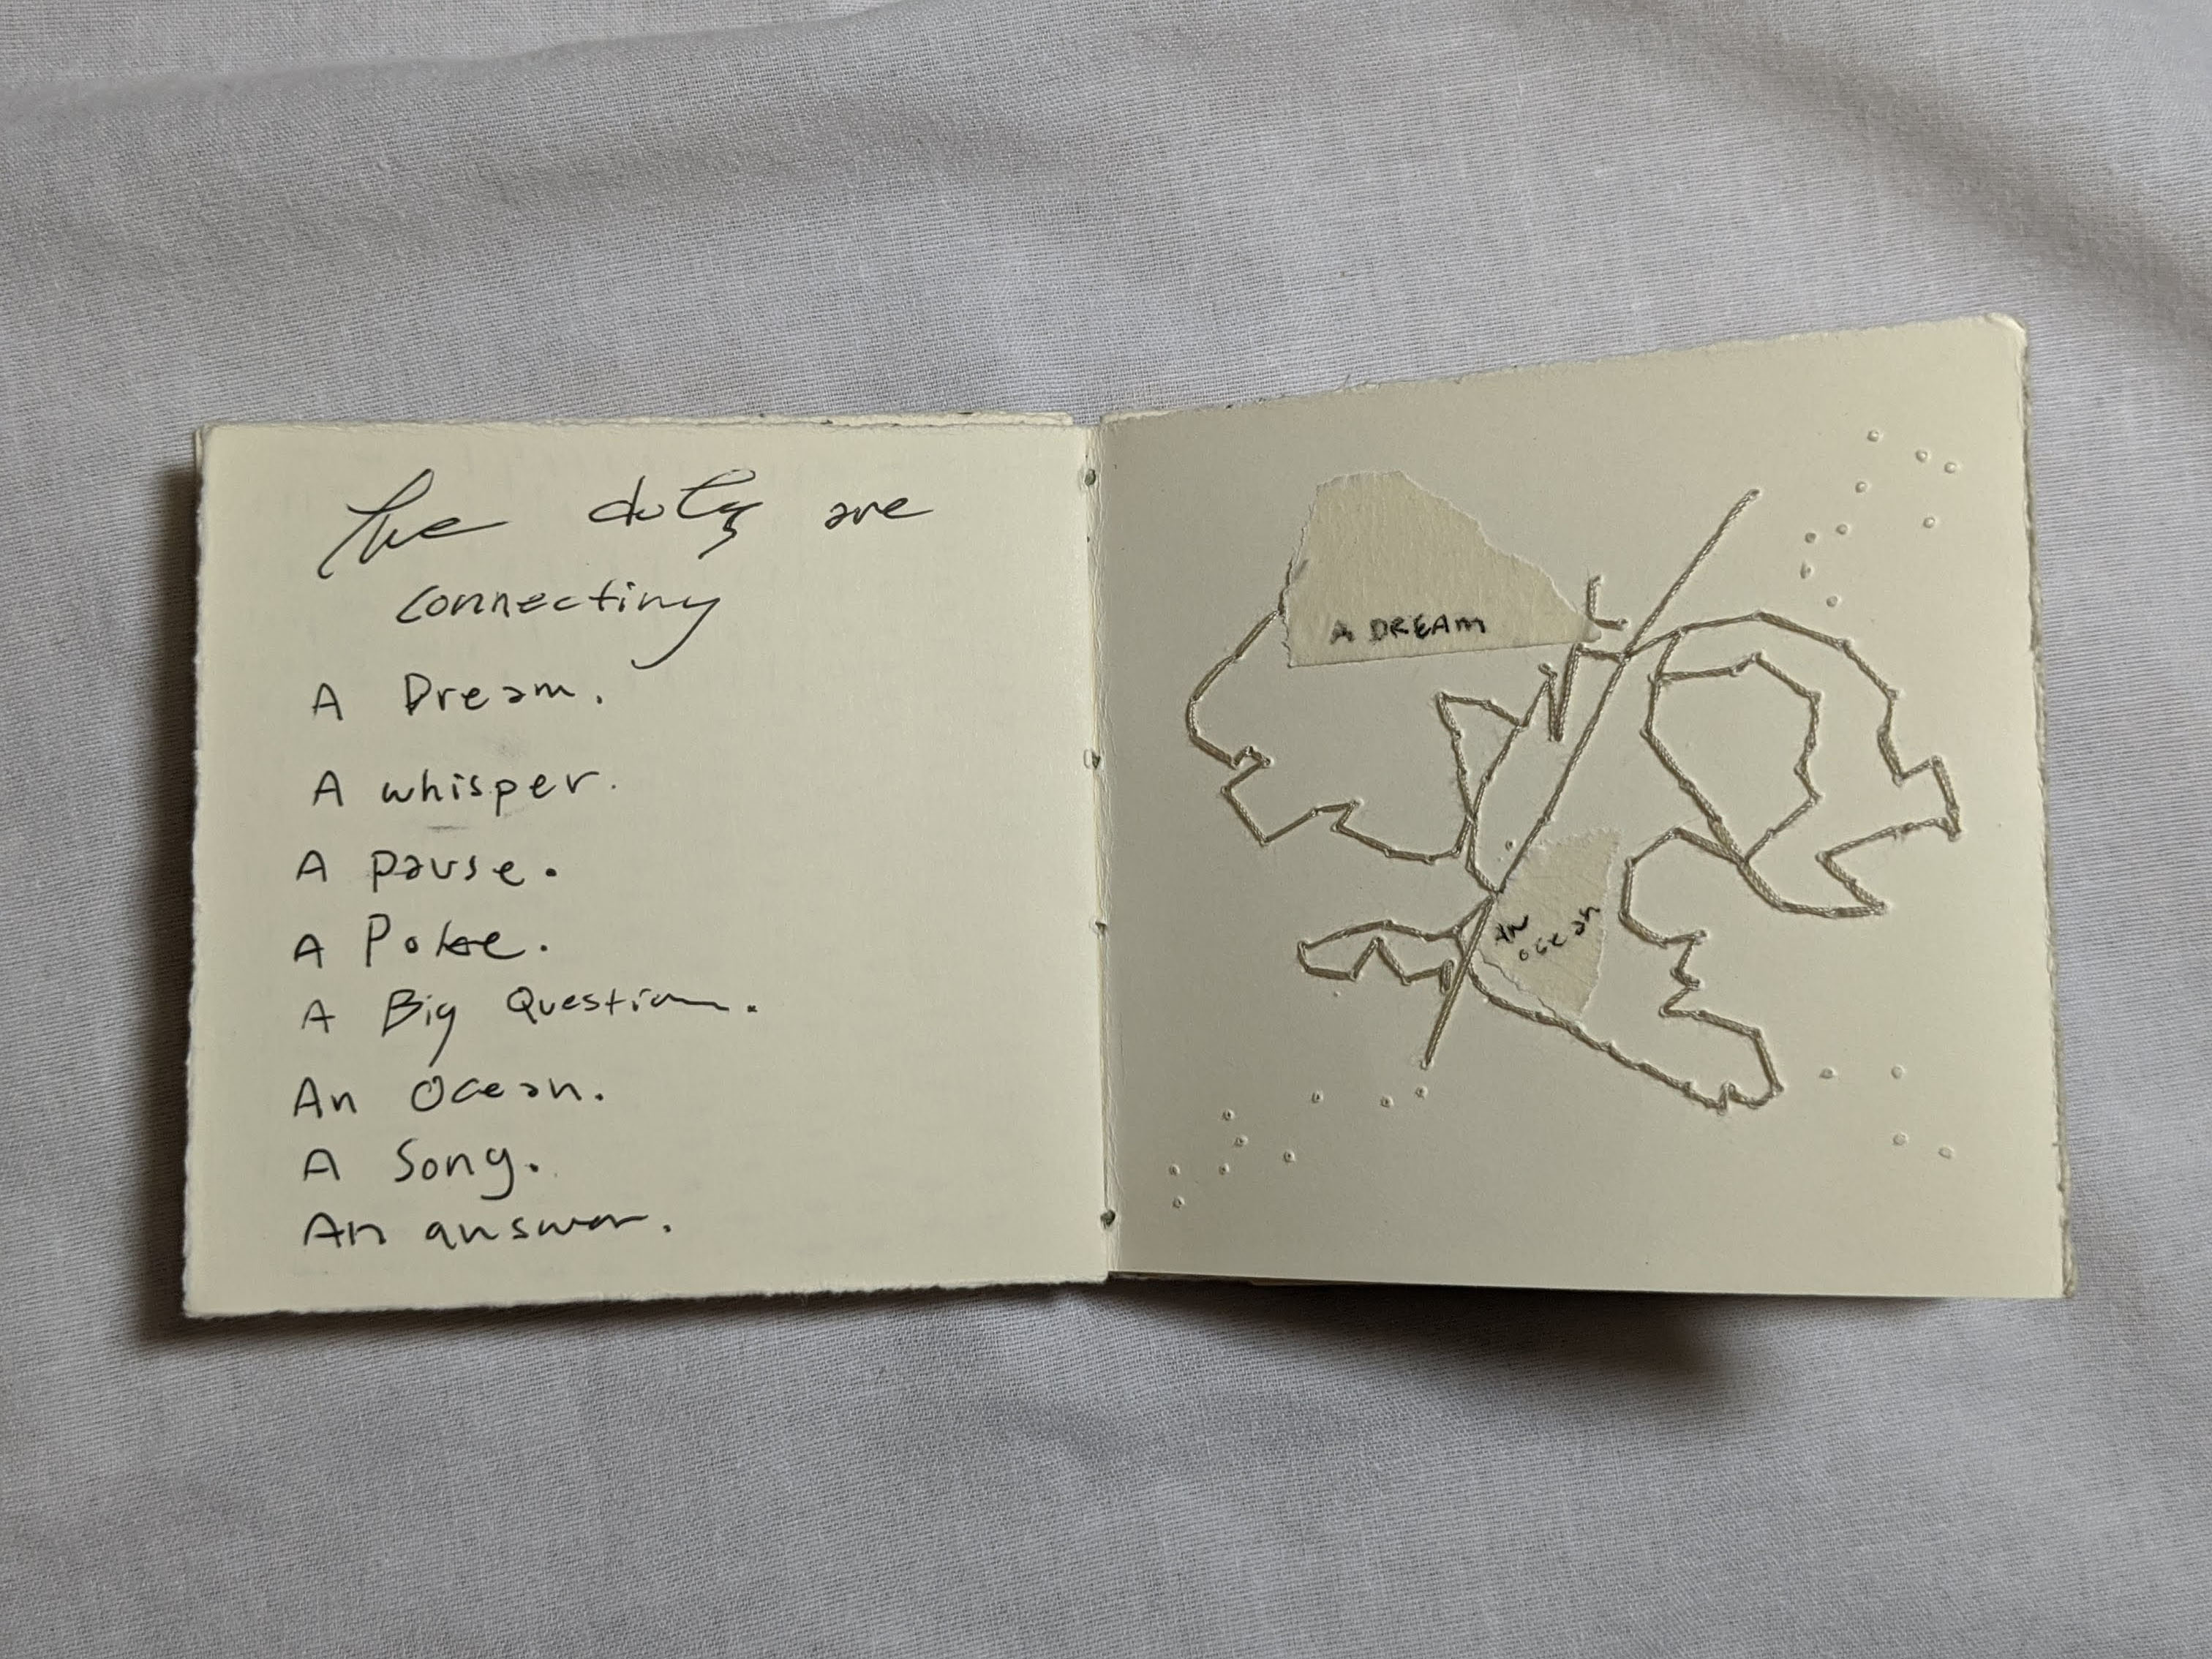 The dots are
connecting
A Dream.
A whisper.
A pause.
A Poke.
A Big Question.
An Ocean.
A Song.
An answer.
A DREAM
AN
ocean